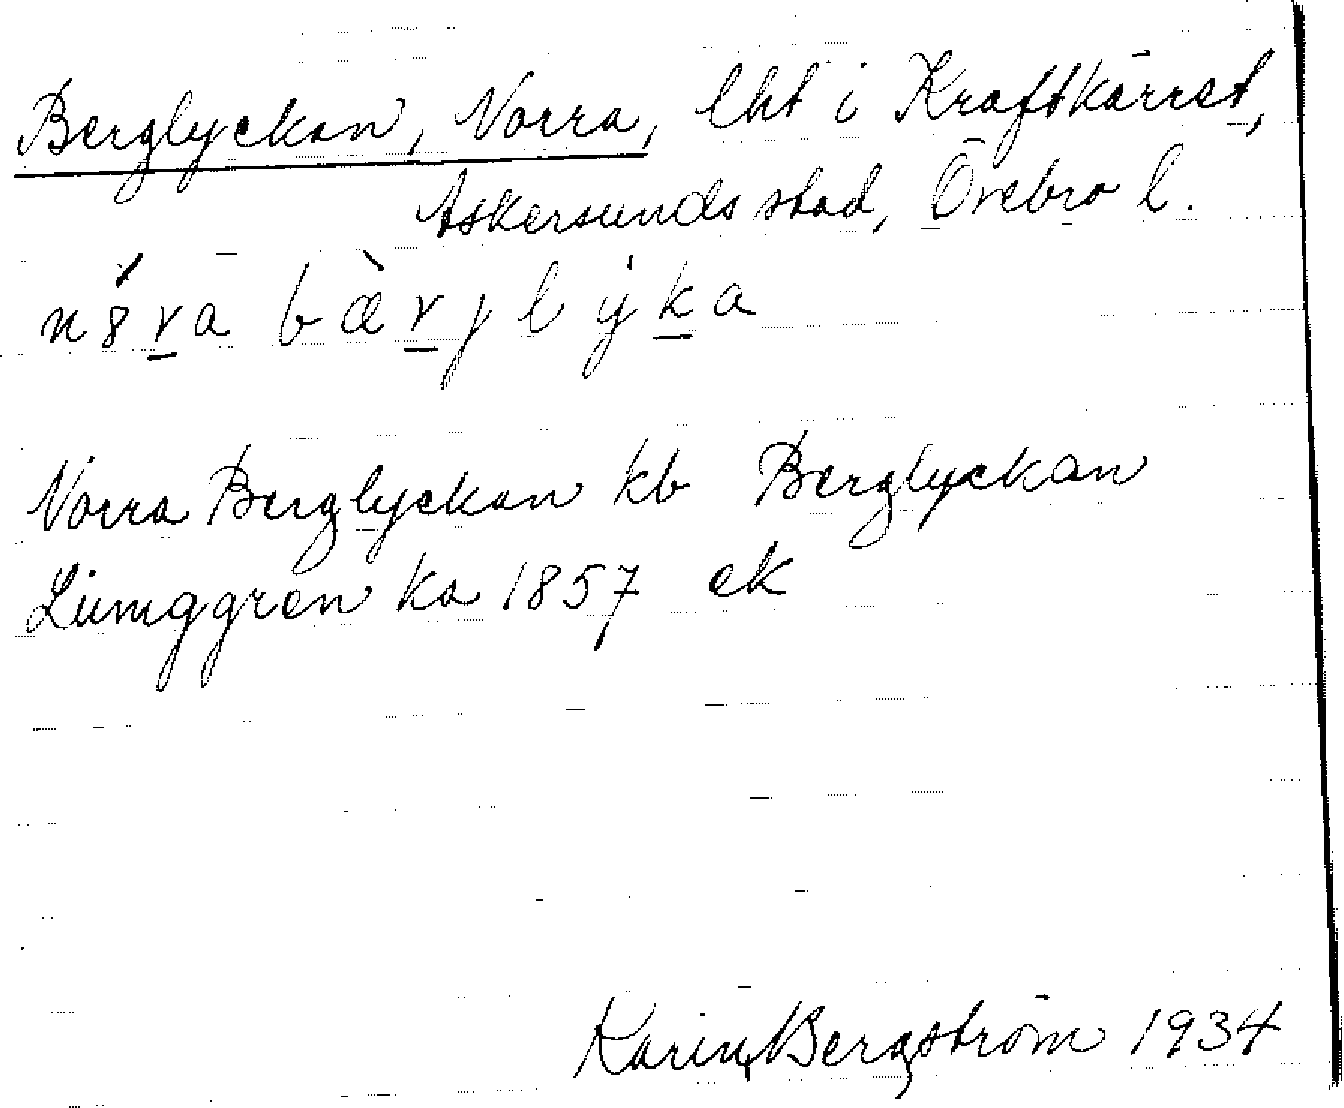 Berglyckan, Norra, lht i Kraftkärret,
Askersunds stad, Örebro l.
n8ra bærjlyka
Norra Berglyckan kb Berglyckan
Ljunggren ka 1857 ek
Karin Bergström 1934